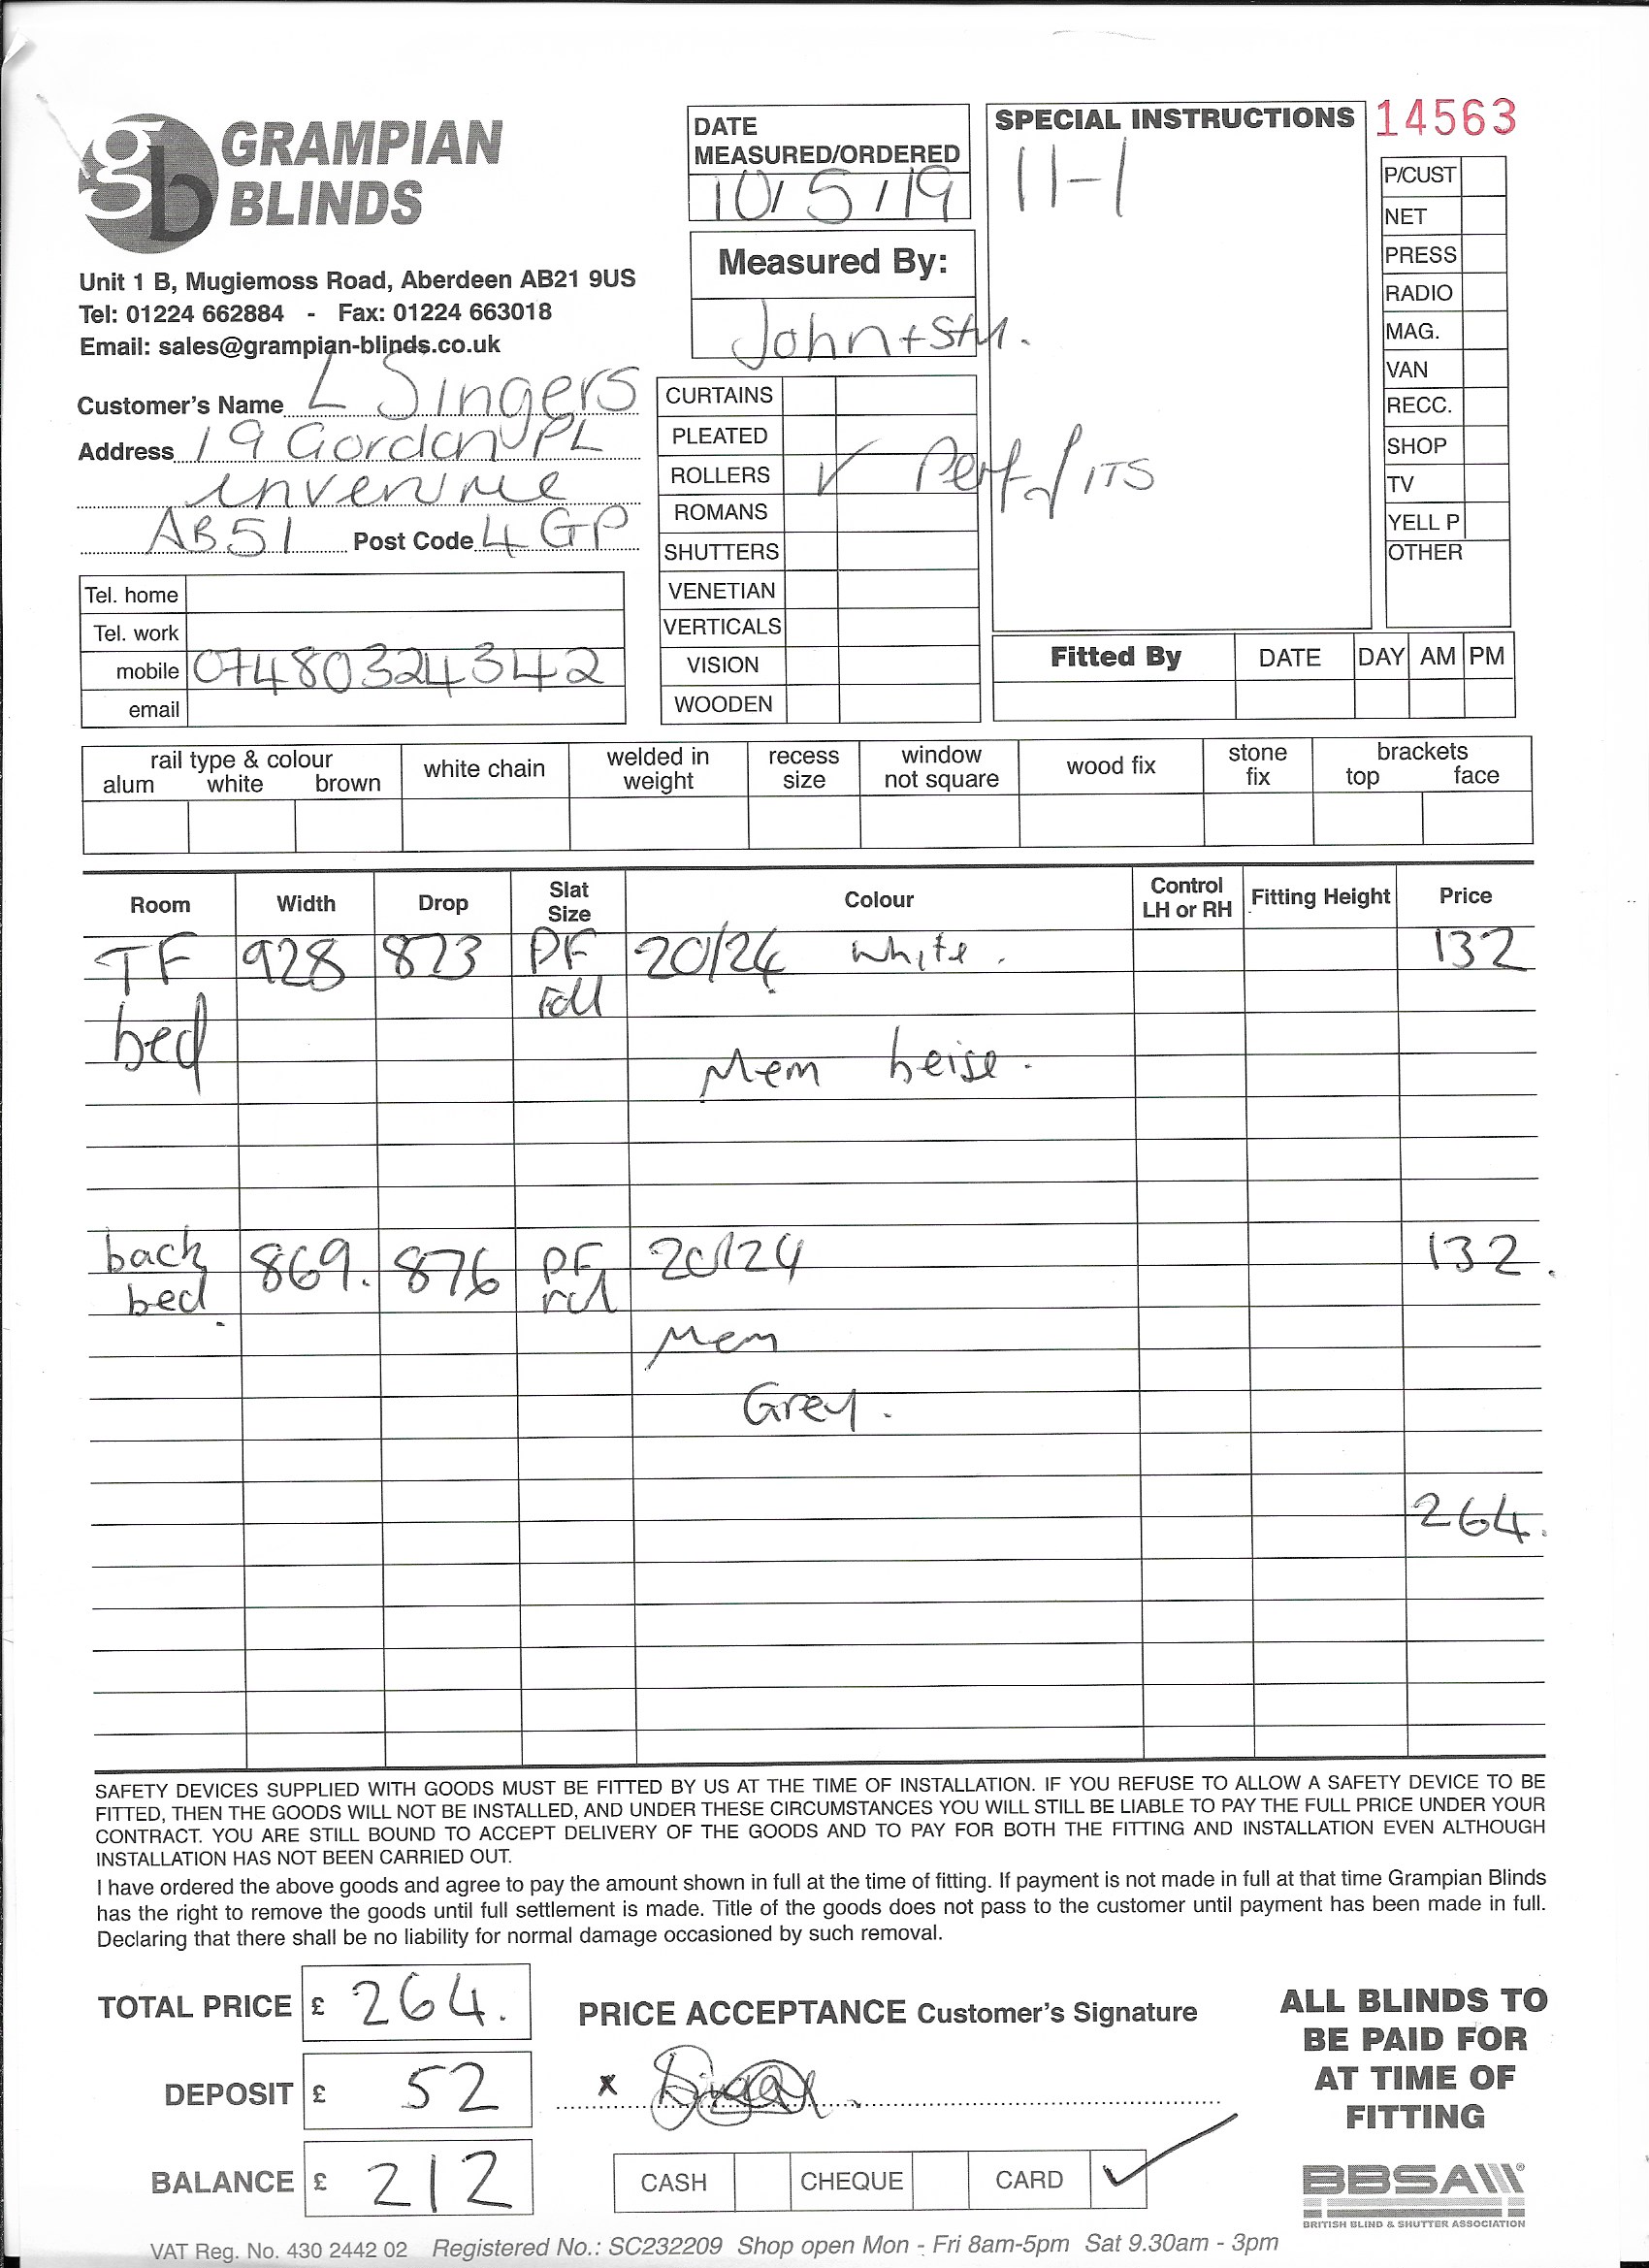 gb GRAMPIAN
BLINDS
Unit 1 B, Mugiemoss Road, Aberdeen AB21 9US
Tel: 01224 662884 - Fax: 01224 663018
Email: sales@grampian-blinds.co.uk
Customer's Name L Singers
Address 19 Gordon PL
inverurie
AB51 Post Code 4 GP
Tel. home
Tel. work
mobile 07480324342
email
DATE
MEASURED/ORDERED
10/5/19
Measured By:
John +
CURTAINS
PLEATED
ROLLERS ✓ Perf / ITS
ROMANS
SHUTTERS
VENETIAN
VERTICALS
VISION
WOODEN
SPECIAL INSTRUCTIONS
11-1
14563
P/CUST
NET
PRESS
RADIO
MAG.
VAN
RECC.
SHOP
TV
YELL P
OTHER
Fitted By DATE DAY AM PM
rail type & colour
alum white brown
white chain
welded in
weight
recess
size
window
not square
wood fix
stone
fix
brackets
top face
Room Width Drop Slat Size Colour Control LH or RH Fitting Height Price
TF 928 823 PF 20/24 white. 132
roll
bed
Mem beige.
back 869. 876 PF 20/24 132.
bed. roll
Mem
Grey.
264.
SAFETY DEVICES SUPPLIED WITH GOODS MUST BE FITTED BY US AT THE TIME OF INSTALLATION. IF YOU REFUSE TO ALLOW A SAFETY DEVICE TO BE
FITTED, THEN THE GOODS WILL NOT BE INSTALLED, AND UNDER THESE CIRCUMSTANCES YOU WILL STILL BE LIABLE TO PAY THE FULL PRICE UNDER YOUR
CONTRACT. YOU ARE STILL BOUND TO ACCEPT DELIVERY OF THE GOODS AND TO PAY FOR BOTH THE FITTING AND INSTALLATION EVEN ALTHOUGH
INSTALLATION HAS NOT BEEN CARRIED OUT.
I have ordered the above goods and agree to pay the amount shown in full at the time of fitting. If payment is not made in full at that time Grampian Blinds
has the right to remove the goods until full settlement is made. Title of the goods does not pass to the customer until payment has been made in full.
Declaring that there shall be no liability for normal damage occasioned by such removal.
TOTAL PRICE £ 264.
DEPOSIT £ 52
BALANCE £ 212
PRICE ACCEPTANCE Customer's Signature
x
CASH CHEQUE CARD ✓
ALL BLINDS TO
BE PAID FOR
AT TIME OF
FITTING
BBSA
BRITISH BLIND & SHUTTER ASSOCIATION
VAT Reg. No. 430 2442 02 Registered No.: SC232209 Shop open Mon - Fri 8am-5pm Sat 9.30am - 3pm